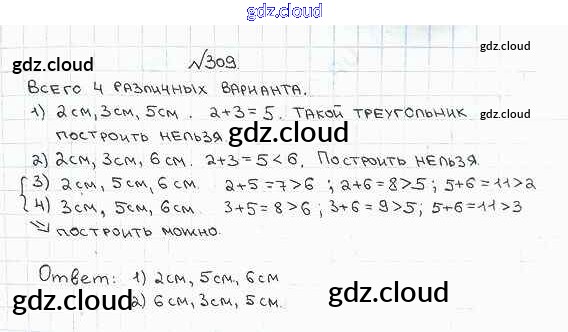 gdz.cloud
№309.
Всего 4 различных варианта.
1) 2см, 3см, 5см. 2+3=5. Такой треугольник
построить нельзя
2) 2см, 3см, 6см. 2+3=5<6. Построить нельзя.
3) 2см, 5см, 6см. 2+5=7>6; 2+6=8>5; 5+6=11>2
4) 3см, 5см, 6см. 3+5=8>6; 3+6=9>5; 5+6=11>3
⇒ построить можно.
Ответ: 1) 2см, 5см, 6см
2) 6см, 3см, 5см.
gdz.cloud
gdz.cloud
gdz.cloud
gdz.cloud
gdz.cloud
gdz.cloud